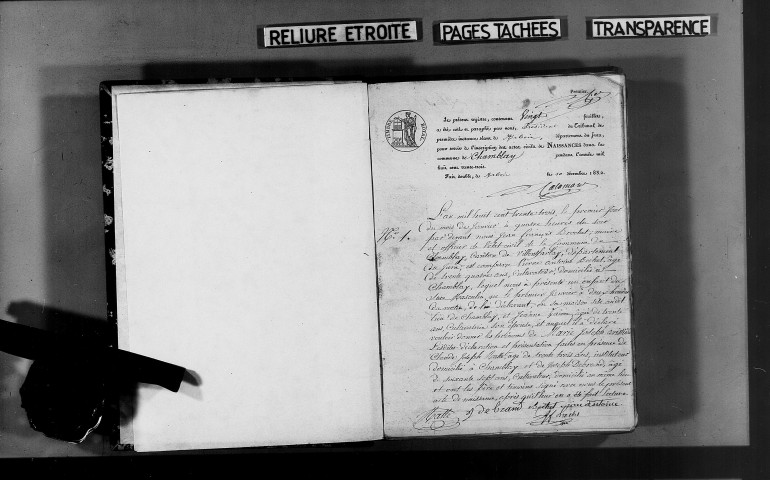 RELIURE ETROITE
PAGES TACHÉES
TRANSPARENCE
Premier
Le présent registre, contenant Vingt feuillets,
a été coté et paraphé par nous, Président du Tribunal de
première instance séant à département du Jura,
pour servir à l'inscription des actes civils de NAISSANCES dans la
commune de Chamblay pendant l'année mil
huit cent trente-trois.
Fait double, le décembre 1832.
N.° 1.
L'an mil huit cent trente trois, le premier jour
du mois de janvier à quatre heures du soir
par devant nous Jean François Brochet, maire
et officier de l'état civil de la commune de
Chamblay, canton de Villersfarlay, département
du Jura, est comparu Pierre Antoine Bechet, âgé
de trente quatre ans, cultivateur, domicilié à
Chamblay, lequel nous a présenté un enfant du
sexe masculin, né le premier janvier à deux heures
du matin, de lui déclarant, en sa maison sise audit
lieu de Chamblay, et Jeanne âgée de trente
ans, cultivatrice son épouse, et auquel il a déclaré
vouloir donner les prénoms de Marie Joseph
lesdites déclaration et présentation faites en présence de
Claude Joseph âgé de trente trois ans, instituteur
domicilié à Chamblay et de Joseph âgé
de soixante sept ans, cultivateur, domicilié au même lieu
et ont les père et témoins signé avec nous le présent
acte de naissance, après qu'il leur en a été fait lecture